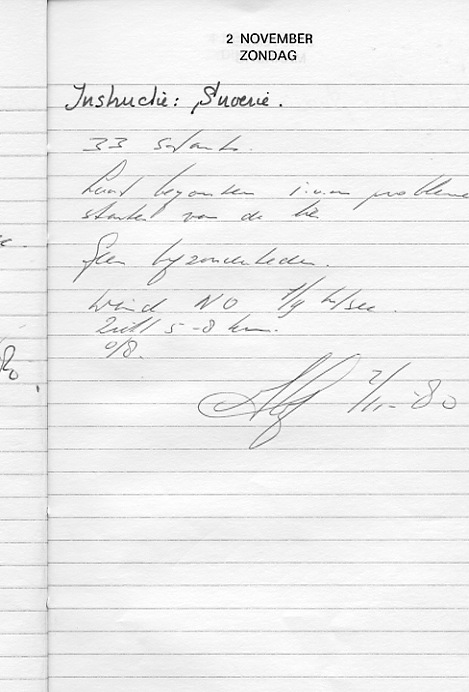 2 NOVEMBER
ZONDAG
Instructie: Snoerie.
33 starts.
Laat begonnen i.v.m. probleme
starten van de lier
Geen bijzonderheden.
Wind NO 1/4 m/sec.
Zicht 5-8 km.
0/8.
2/11-80